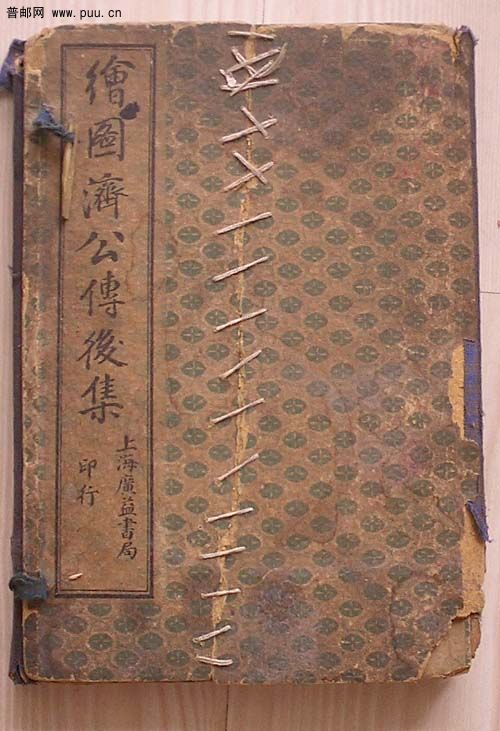 普邮网 www.puu.cn
繪圖濟公傳後集
上海廣益書局
印行